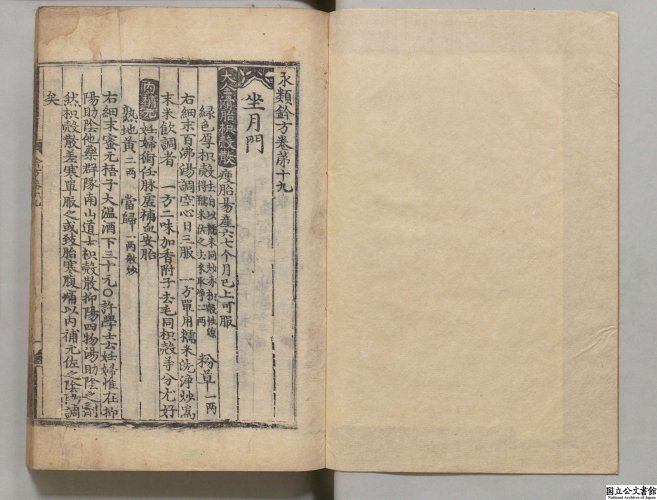 永類鈐方卷第十九
坐月門
大金滑胎枳殼散 瘦胎易產六七个月已上可服
粉草 一兩
右細末百沸湯調空心日三服 一方單用糯米洗淨炒爲
末米飲調者 一方二味加香附子去毛同枳殼等分尤好
內補元 妊婦衝任脉虛補血安胎
熟地黃 二兩 當歸 一兩
右細末蜜元梧子大溫酒下三十元〇許學士云妊婦惟在抑
陽助陰他藥群隊南山道士枳殼散抑陽四物湯助陰之劑
然枳殼散差寒單服之或致胎寒腹痛以內補元佐之陰陽調
矣
国立公文書館
National Archives of Japan